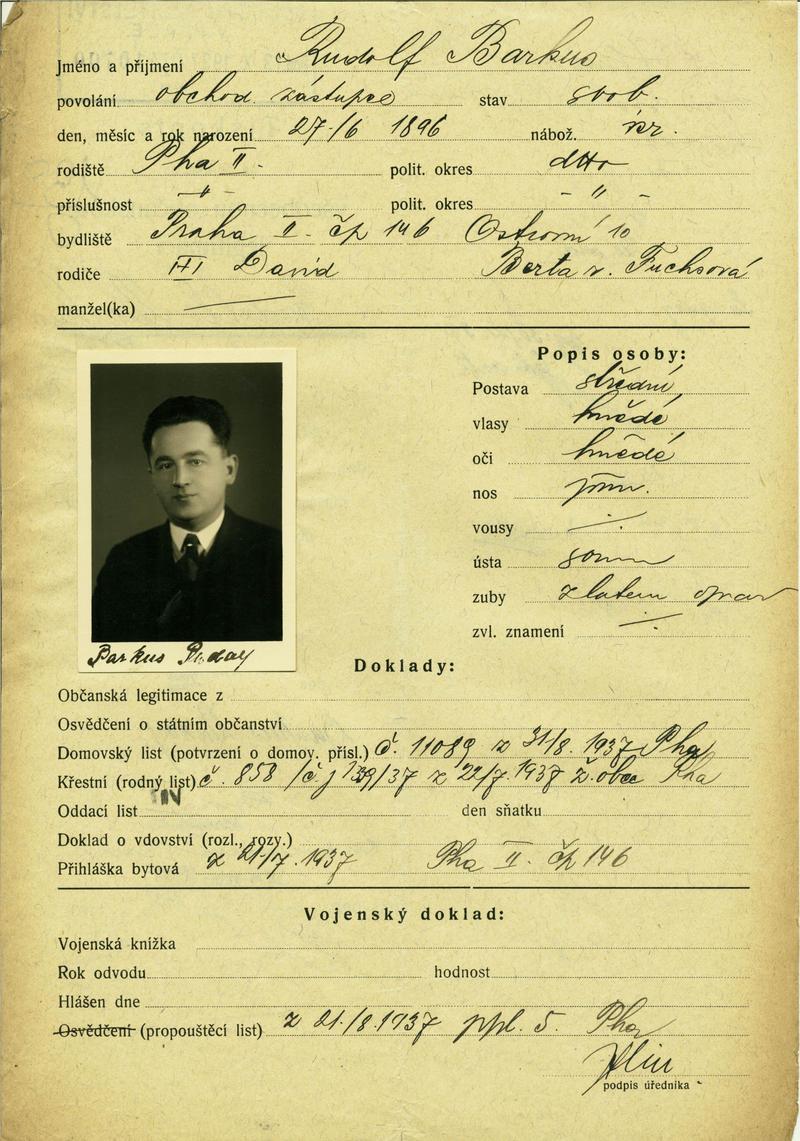 Jméno a příjmení Rudolf Barkus
povolání obchod. zástupce stav svob.
den, měsíc a rok narození 27/6 1896 nábož. izr.
rodiště Pha II. polit. okres dtto
příslušnost - " - polit. okres - " -
bydliště Praha II - čp 146 Ostrovní 10
rodiče David Berta r. Fuchsová
manžel(ka)
Popis osoby:
Postava střední
vlasy hnědé
oči hnědé
nos
vousy ./.
ústa
zuby zlatem oprav
zvl. znamení ./.
Barkus Rudolf
Doklady:
Občanská legitimace z
Osvědčení o státním občanství
Domovský list (potvrzení o domov. přísl.) č. 11089 z 31/8. 1937 Pha
Křestní (rodný list) č. 858 /č j 139/37 z 22/7. 1937 ž. obec Pha
Oddací list den sňatku
Doklad o vdovství (rozl., rozv.)
Přihláška bytová z 21/7. 1937 Pha II. čp 146
Vojenský doklad:
Vojenská knížka
Rok odvodu hodnost
Hlášen dne
Osvědčení (propouštěcí list) z 21./8. 1937 ppl. 5. Pha
podpis úředníka